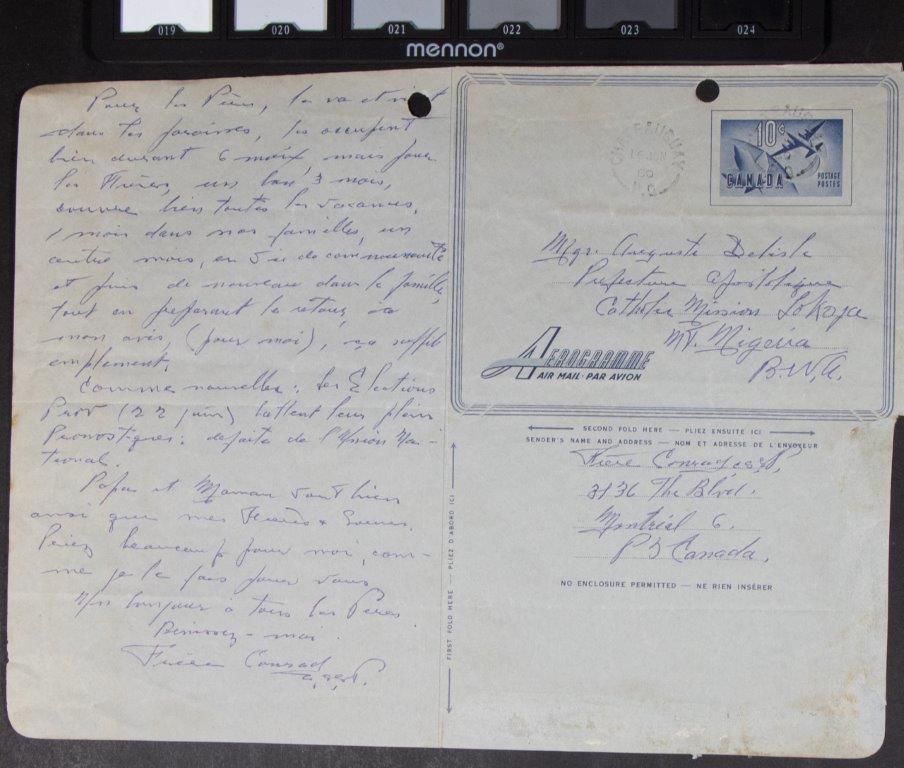 019 020 021 022 023 024
mennon®
Pour les Pères, le va et vient
dans les paroisses, les occupent
bien durant 6 mois, mais pour
les Frères, un bon 3 mois,
couvre bien toutes les vacances,
1 mois dans nos familles, un
autre mois, en vie de communauté
et puis de nouveau dans la famille,
tout en préparant le retour,
mon avis, (pour moi), ça suffit
amplement.
Comme nouvelles: les Élections
Prov (22 juin) battent leur plein
Pronostiques: défaite de l'Union Na-
tional.
Papa et Maman sont bien
ainsi que mes Frères & Soeurs.
Priez beaucoup pour moi, com-
me je le fais pour vous
bonjour à tous les Pères
Bénissez-moi.
Frère Conrad
c.s.sp.
CHATEAUGUAY
JUN
60
P.Q.
10¢
CANADA
POSTAGE
POSTES
Mgr. Auguste Delisle
Prefecture Apostolique
Catholic Mission Lokoja
Nigeria
B.W.A.
AEROGRAMME
AIR MAIL · PAR AVION
SECOND FOLD HERE — PLIEZ ENSUITE ICI
SENDER'S NAME AND ADDRESS — NOM ET ADRESSE DE L'ENVOYEUR
Frère Conrad c.s.sp.
3136 The Blvd.
Montréal 6.
P Q Canada.
NO ENCLOSURE PERMITTED — NE RIEN INSÉRER
FIRST FOLD HERE — PLIEZ D'ABORD ICI